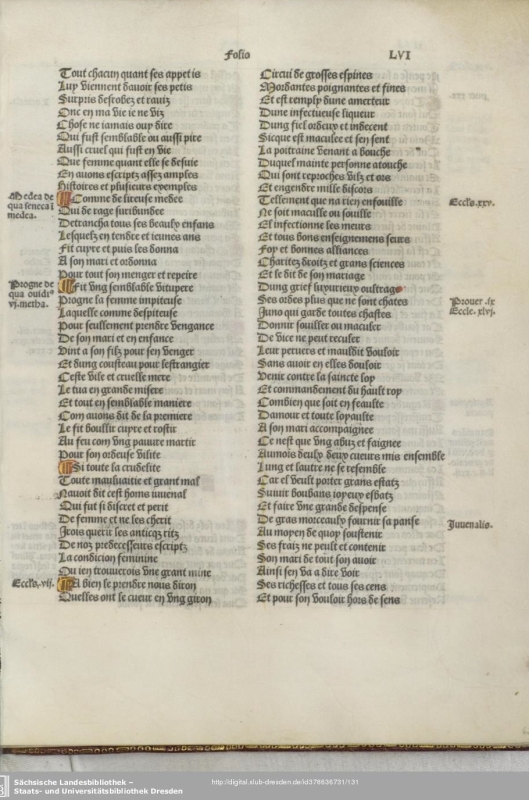 Folio LVI
Tout chacun quant ses appetis
Luy viennent dauoir ses petis
Surpris desrobez et rauiz
Onc en ma vie ie ne viz
Chose ne iamais ouy dire
Qui fust semblable ou aussi pire
Aussi cruel qui fust en vie
Que femme quant elle se desuie
En auons escriptz assez amples
Histoires et plusieurs exemples
Medea de
qua seneca i
medea.
Comme de lireuse medee
Qui de rage furibundee
Detrencha tous ses beaulx enfans
Lesquelz en tendre et ieunes ans
Fit cuyre et puis les donna
A son mari et ordonna
Pour tout son menger et repeire
Progne de
qua ouidi9
vj. metha.
Fit vng semblable vitupere
Progne la femme impiteuse
Laquelle comme despiteuse
Pour seullement prendre vengance
De son mari et en enfance
Vint a son filz pour sen venger
Et dung cousteau pour lestrangier
Ceste vile et cruelle mere
Le tua en grande misere
Et tout en semblable maniere
Com auons dit de la premiere
Le fit boullir cuyre et rostir
Au feu com vng pauure martir
Pour son ordeuse vilite
Si toute la crudelite
Toute mauluaitie et grant mal
Nauoit dit cest homs iuuenal
Qui fut si discret et perit
De femme et ne les cherit
Irois querir les anticqz ritz
De noz predecesseurs escriptz
La condicion feminine
Ou ien trouuerois vne grant mine
Eccle. vij.
A bien le prendre nous diron
Quelles ont le cueur en vng giron
Circui de grosses espines
Mordantes poignantes et fines
Et est remply dune amerteur
Dune infectueuse liqueur
Dung fiel ordeux et indecent
Sicque est maculee et sen sent
La poitraine venant a bouche
Duquel mainte personne atouche
Qui sont reproches vilz et ors
Et engendre mille discors
Tellement que na rien enfouille
Eccle. xxv.
Ne soit macule ou souille
Et infectionne les meurs
Et tous bons enseignemens seurs
Foy et bonnes alliances
Charitez droitz et grans sciences
Et le dit de son mariage
Dung grief luxurieux oultrage
Ses ordes plus que ne sont chates
Prouer. ix
Eccle. xlvj.
Juno qui garde toutes chastes
Donnir souiller ou maculer
De vice ne peut reculer
Leur peruers et mauldit vouloir
Sans auoir en elles douloir
Venir contre la saincte loy
Et commandement du hault roy
Combien que soit en feaulte
Damour et toute loyaulte
A son mari accompaignee
Ce nest que vng abuz et faignee
Aumois deulx deux cueurs mis ensemble
Lung et lautre ne se resemble
Car el veult poiter grans estatz
Suiuir boubans ioyeux esbatz
Et faire vne grande despense
De gras morceaulx fournir sa panse
Juuenalis.
Au moyen de quoy soustenir
Ses fraiz ne peult et contenir
Son mari de tout son auoir
Ainsi sen va a dire voir
Ses richesses et tous ses cens
Et pour son vouloir hors de sens
Sächsische Landesbibliothek –
Staats- und Universitätsbibliothek Dresden
http://digital.slub-dresden.de/id378636731/131